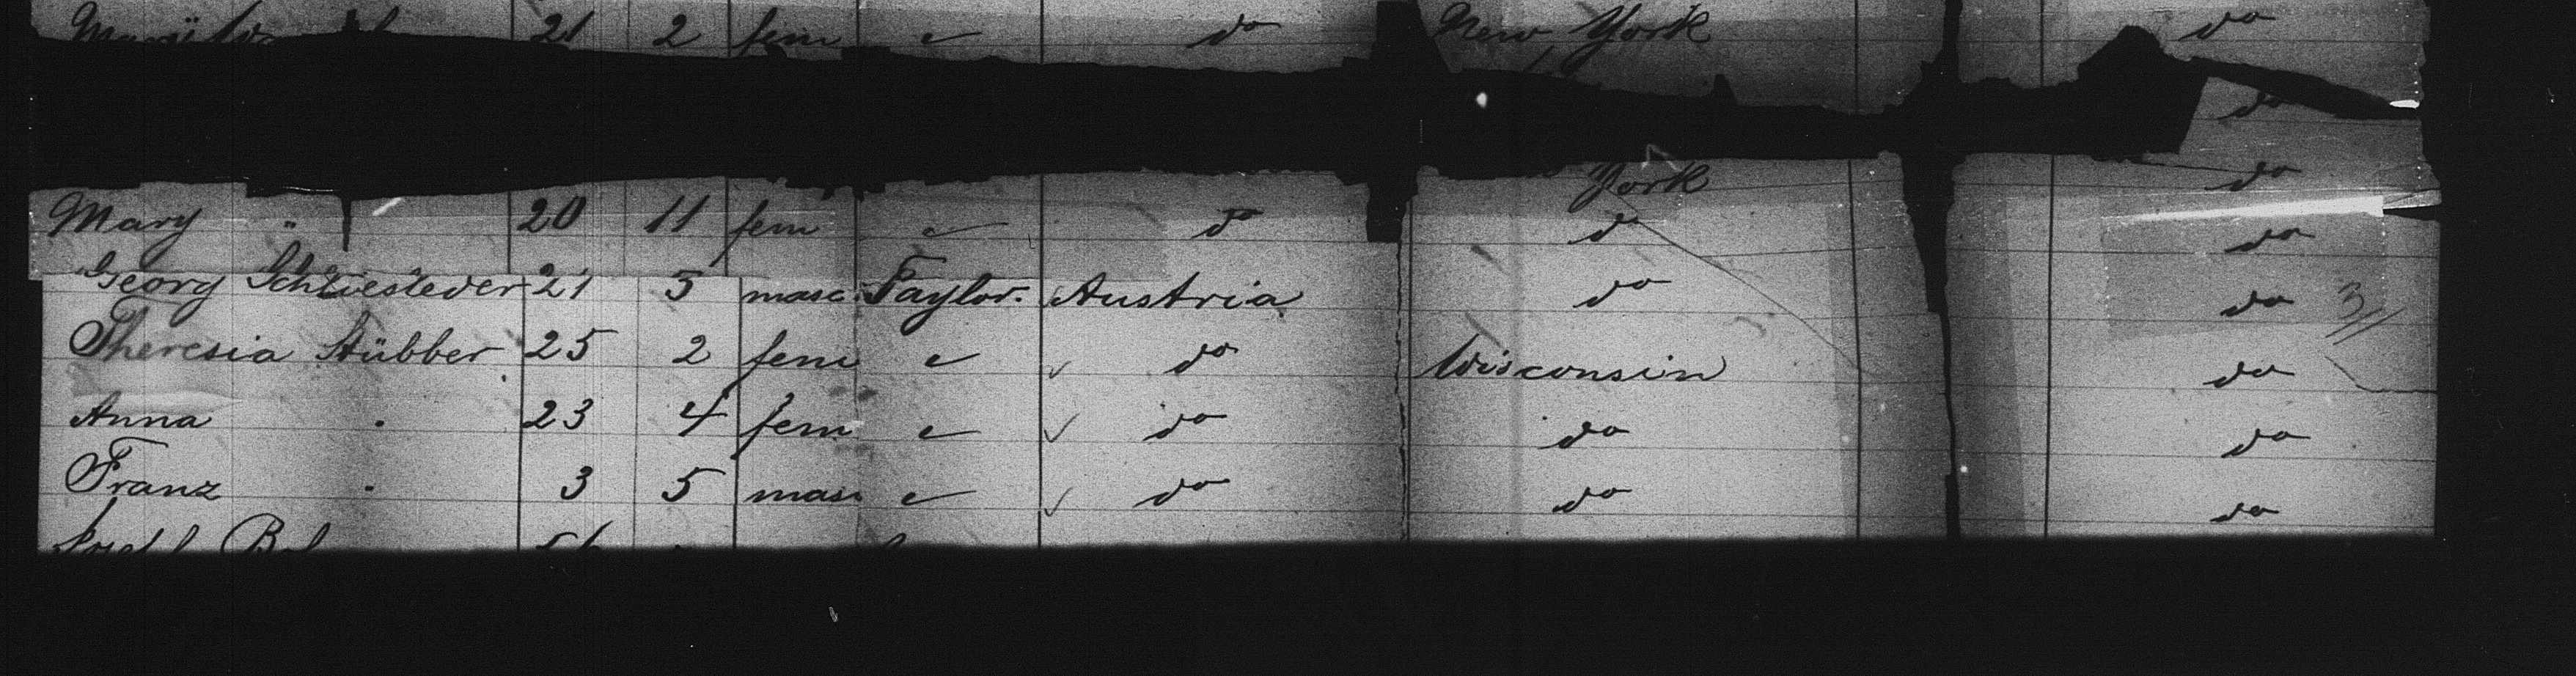 21 2 fem " do New York do
do
York do
Mary " 20 11 fem " do do do
Georg 21 3 masc. Taylor. Austria do do 3
Theresia Stübber 25 2 fem " ✓ do Wisconsin do
Anna " 23 4 fem " ✓ do do do
Franz " 3 5 masc " ✓ do do do